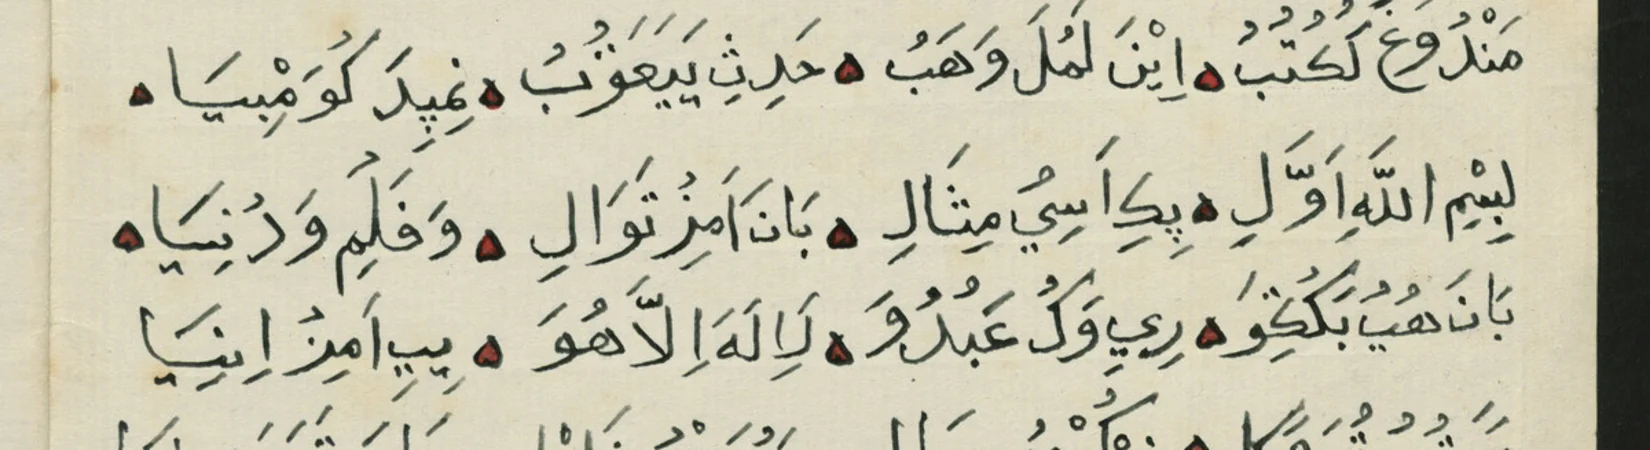 مَنْدُ وَغُ كَكُتُبُ ● اِيْنَ لَمُلَ وَهَبُ ● حَدِثِ يَيَعَقُوْبُ ● نِمِپِدَ كُوَمْبِيَا ●
بِسْمِ اللَّهِ اَوَّلِ ● پِكِ اَسِيُ مِثَالِ ● بَانَ اَمِزُتَوَالِ ● وَفَلَمِ وَدُنِيَا ●
بَانَ هُيُ بَكُكِتِوَ ● رِيِ وَكُ عَبُدُوَ ● لَا اِلَهَ اِلَّا هُوَ ● يِيِ اَمِزُ اِنِيَا